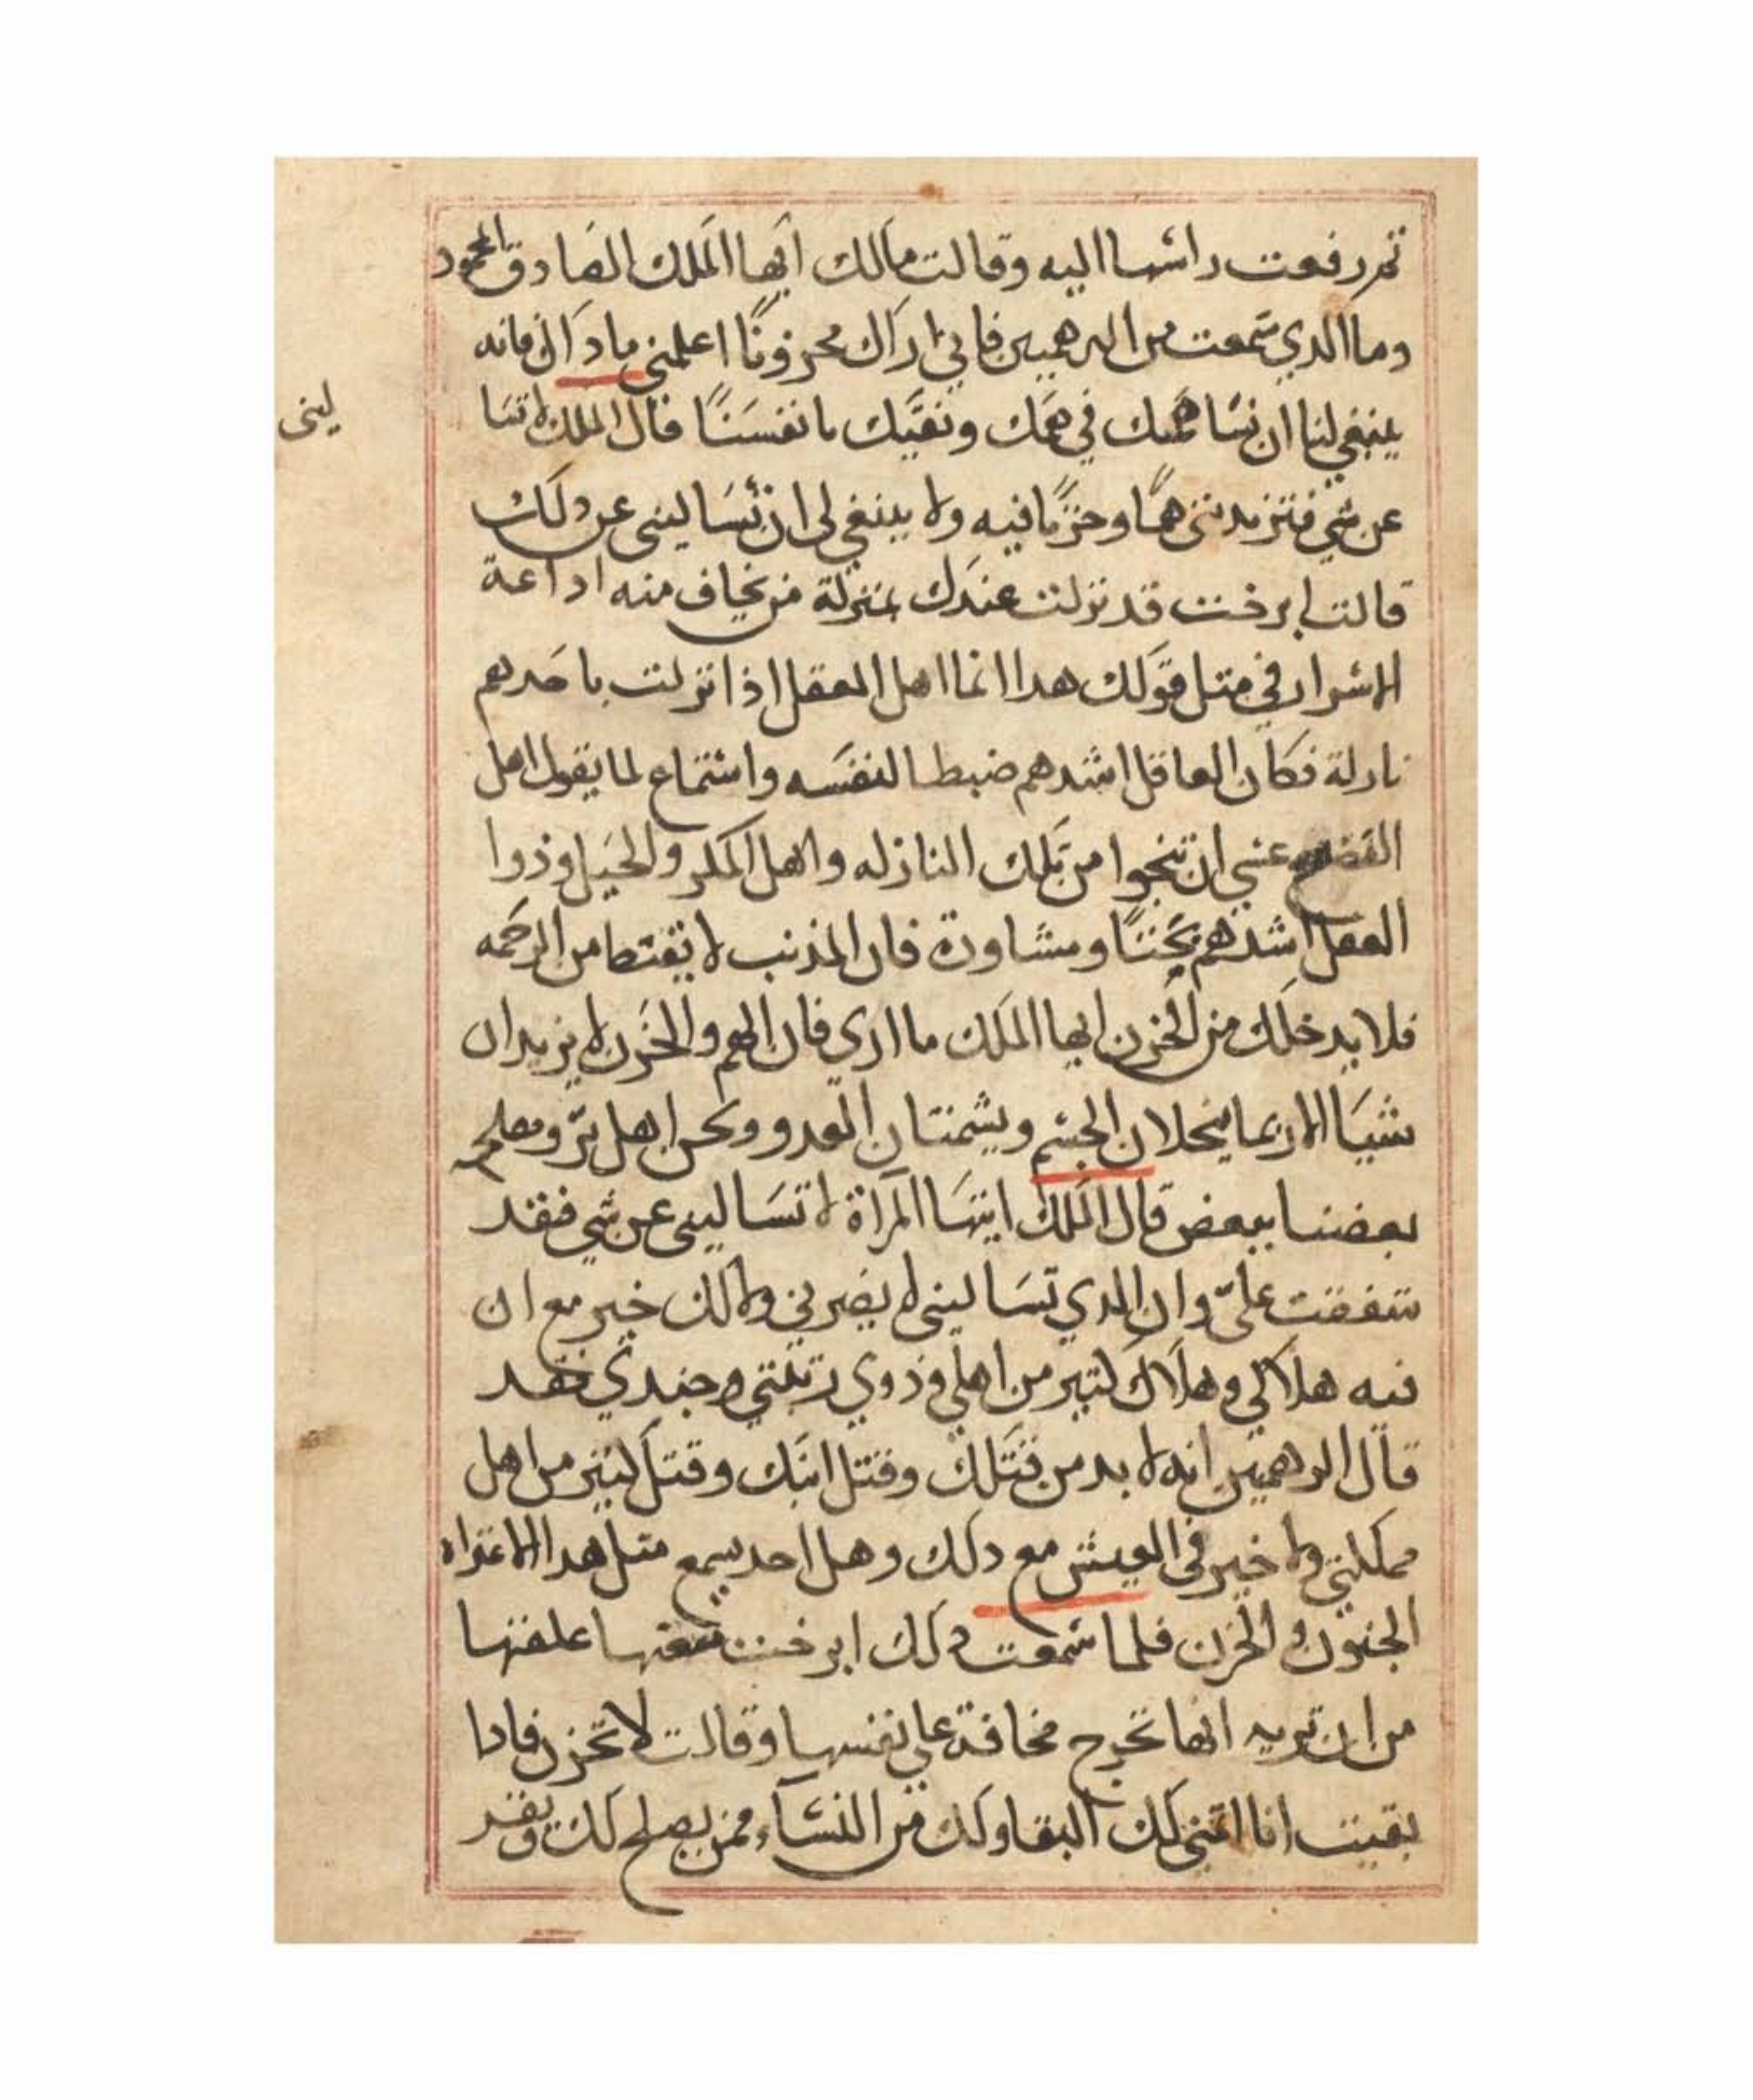 ثم رفعت راسها اليه وقالت مالك ايها الملك الصادق المحمود
وما الذي سمعت من البرهميين فاني اراك محزونًا اعلمني ما ذاك فانه
ينبغي لنا ان نساهمك في همك ونقيك بانفسنًا قال الملك لا تسا
ليني
عن شي فتزيديني همًا وحزنًا فيه ولا ينبغي لي ان تسَاليني عن دلك
قالت ابرخت قد نزلت عندك بمنزلة من يخاف منه اداعة
الاسرار في مثل قولك هدا انما اهل العقل اذا نزلت باحدهم
نازلة فكان العاقل اشدهم ضبطا لنفسه واستماع لما يقول اهل
عني ان تنجوا من تلك النازله والاهل المكر والحيل وذوا
العقل اشدهم بحثًا ومشاورة فان المذنب لا يقنط من الرحمه
فلا يدخلك من الحزن ايها الملك ما اري فان الهم والحزن لا يزيدان
شيَا الا ربما ينحلان الجسم ويشمتان العدو ونحن اهل برّ ومصلح
بعضنا ببعض قال الملك ايتها المراة لا تسَاليني عن شي فقد
شققت عليّ وان الدي تسَاليني لا يضرني ولا لك خير مع ان
فيه هلاكي وهلاك كثير من اهلي وذوي رتبتي وجندي فقد
قال البرهميين انه لا بد من قتلك وقتل ابنك وقتل كثير من اهل
مملكتي ولا خير في العيش مع دلك وهل احد يسمع مثل هدا الا اعتراه
الجنون والحزن فلما سمعت دلك ابرخت منعها
من ان تريه انها تخرج مخافة علي نفسها وقالت لا تحزن فادا
بقيت انا اتمني لك البقا ولك من النسآء ممن يصلح لك